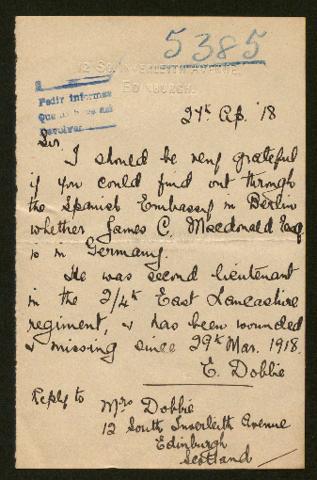 5385
12 SOUTH INVERLEITH AVENUE,
EDINBURGH.
Pedir informes
Devolver
27th Ap. '18
Sir,
I should be very grateful
if you could find out through
the Spanish Embassy in Berlin
whether James C. Macdonald Esq
is in Germany.
He was second lieutenant
in the 2/4th East Lancashire
regiment, & has been wounded
& missing since 29th Mar. 1918.
E. Dobbie
Reply to
Mrs Dobbie
12 South Inverleith Avenue
Edinburgh
Scotland